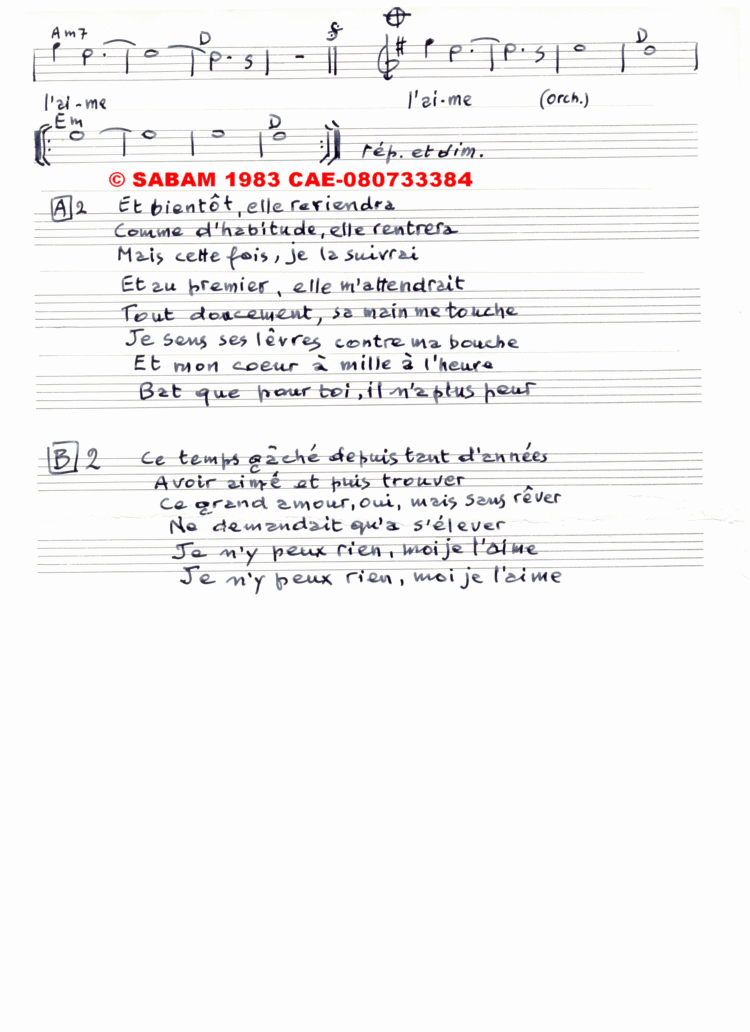 Am7 D D
l'ai-me l'ai-me (orch.)
Em D
rép. et dim.
© SABAM 1983 CAE-080733384
A 2 Et bientôt, elle reviendra
Comme d'habitude, elle rentrera
Mais cette fois, je la suivrai
Et au premier, elle m'attendrait
Tout doucement, sa main me touche
Je sens ses lèvres contre ma bouche
Et mon coeur à mille à l'heure
Bat que pour toi, il n'a plus peur
B 2 Ce temps gâché depuis tant d'années
Avoir aimé et puis trouver
Ce grand amour, oui, mais sans rêver
Ne demandait qu'a s'élever
Je n'y peux rien, moi je l'aime
Je n'y peux rien, moi je l'aime